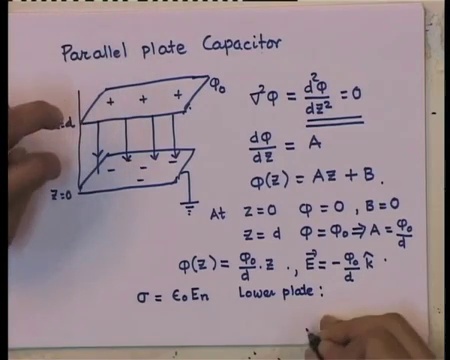 Parallel plate Capacitor
+ + + φ₀
d
- - - -
z=0
∇²φ = d²φ/dz² = 0
dφ/dz = A
φ(z) = Az + B.
At z=0 φ=0, B=0
z=d φ=φ₀ ⇒ A = φ₀/d
φ(z) = φ₀/d . z , E⃗ = - φ₀/d k̂ .
σ = ϵ₀En Lower plate :